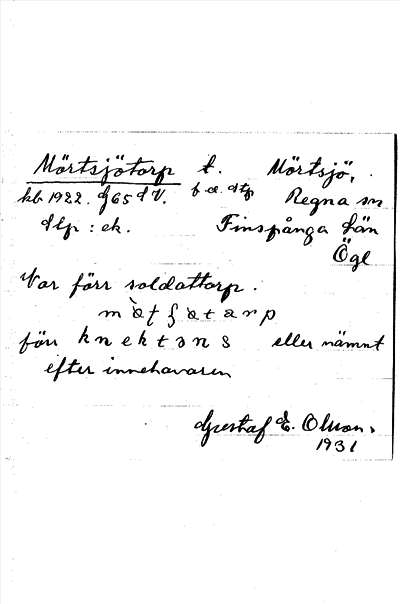 Mörtsjötorp t. Mörtsjö,
kb 1922. f65 d V. f.d. stp Regna sn
dlp : ek. Finspånga län
Ögl
Var förr soldattorp.
förr knektəns eller nämnt
efter innehavaren
Gustaf E. Olson.
1931